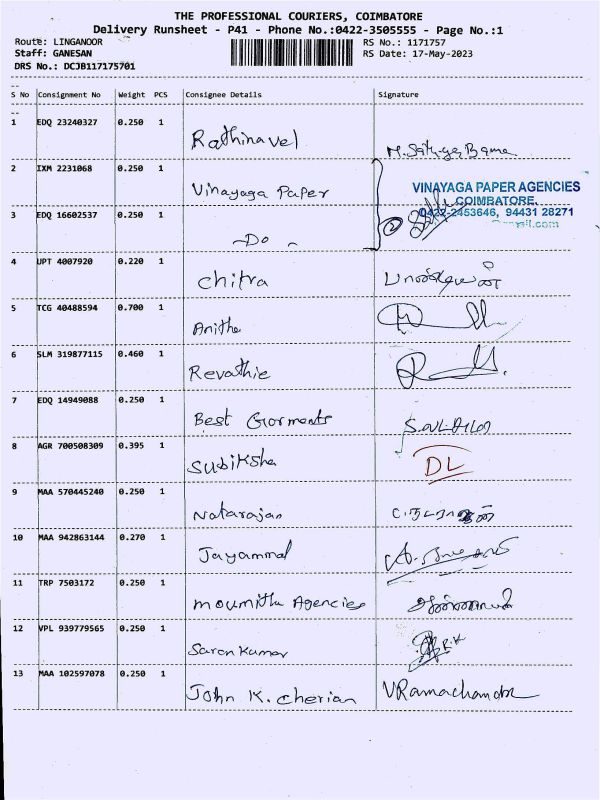 THE PROFESSIONAL COURIERS, COIMBATORE
Delivery Runsheet - P41 - Phone No.:0422-3505555 - Page No.:1
Route: LINGANOOR RS No.: 1171757
Staff: GANESAN RS Date: 17-May-2023
DRS No.: DCJB117175701
S No Consignment No Weight PCS Consignee Details Signature
1 EDQ 23240327 0.250 1 Rathinavel
2 IXM 2231068 0.250 1 Vinayaga Paper
VINAYAGA PAPER AGENCIES
COIMBATORE.
0422-2453646, 94431 28271
3 EDQ 16602537 0.250 1 -Do- 2
4 UPT 4007920 0.220 1 Chitra
5 TCG 40488594 0.700 1 Anitha
6 SLM 319877115 0.460 1 Revathie
7 EDQ 14949088 0.250 1 Best Garments
8 AGR 700508309 0.395 1 Subiksha DL
9 MAA 570445240 0.250 1 Natarajan
10 MAA 942863144 0.270 1 Jayammal
11 TRP 7503172 0.250 1 Moumitha Agencies
12 VPL 939779565 0.250 1 Saran Kumar
13 MAA 102597078 0.250 1 John K. Cherian VRamachandr